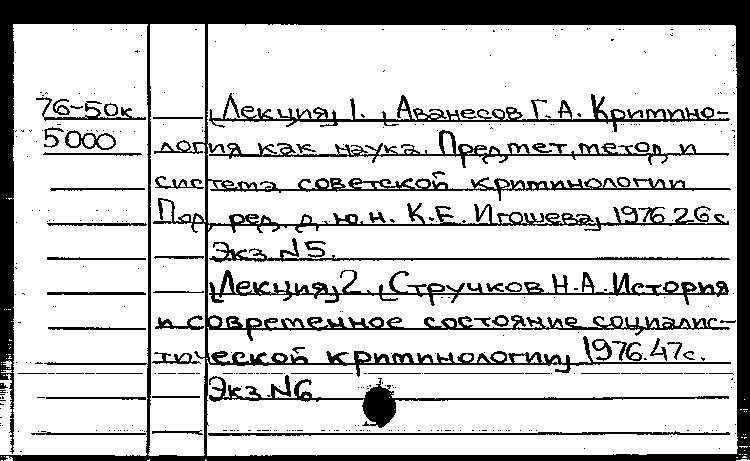 76-50к Лекция, 1. Аванесов Г.А. Кримино-
5000 логия как наука. Предмет, метод, и
система советской криминологии
Под, ред. д. ю. н. К.Е. Игошева, 1976. 26 с.
Экз. N5.
Лекция, 2. Стручков Н.А. История
и современное состояние социалис-
тической криминологии, 1976. 47с.
Экз. N6.